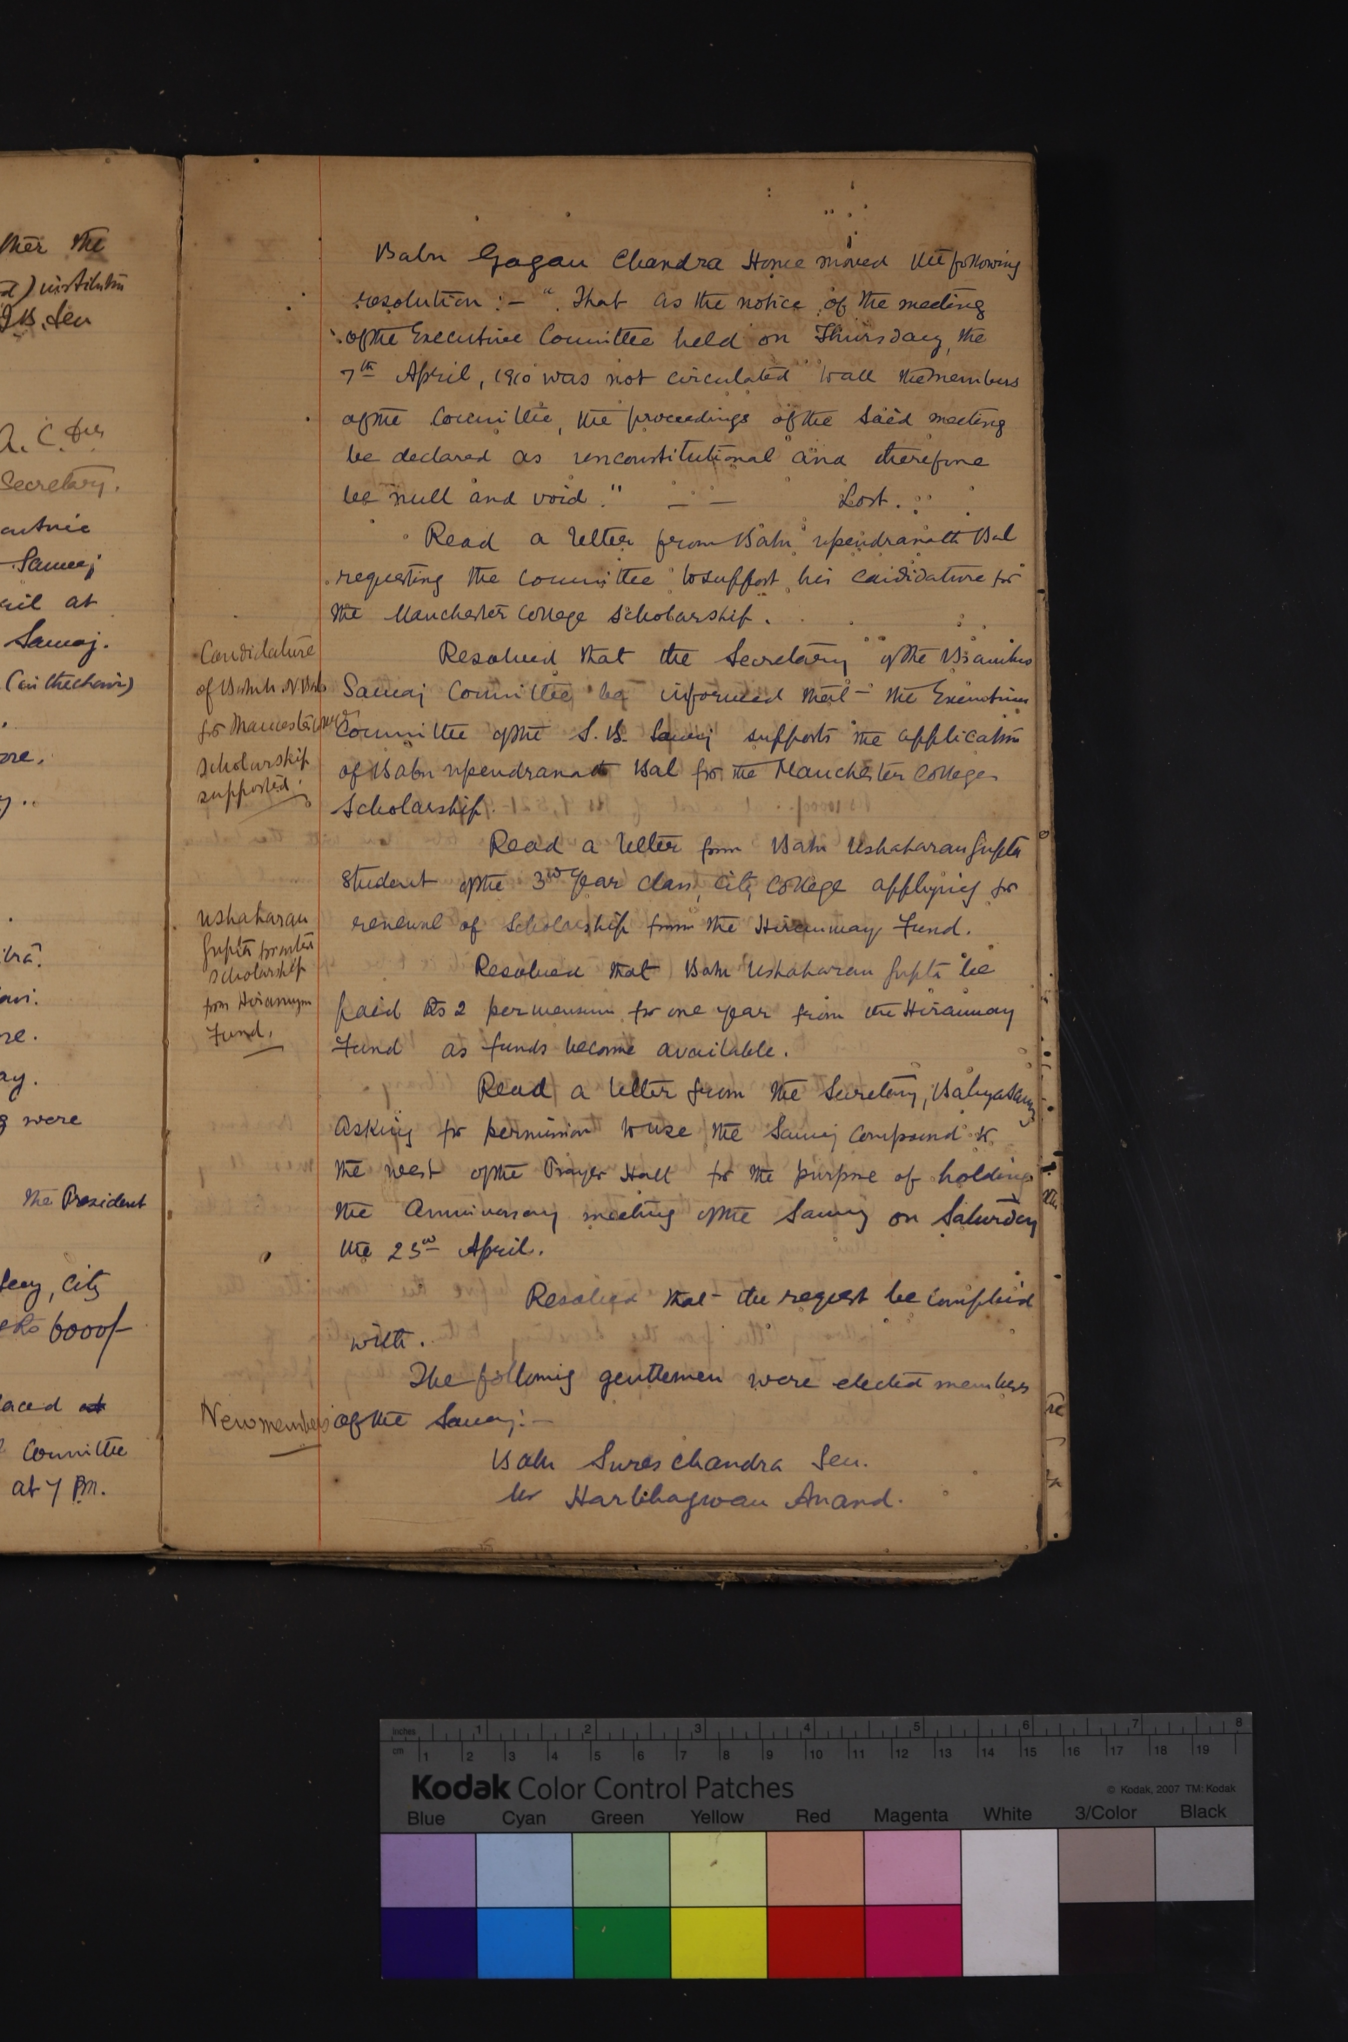 ther the
institution
J.B. Sen
A. C. Das
Secretary.
Samaj
at
Samaj.
(in the chair)
ore.
re.
ay.
were
the President
, City
Rs 6000/-
laced at
Committee
at 7 P.M.
Babu Gagan Chandra Home moved the following
resolution :- "That as the notice of the meeting
of the Executive Committee held on Thursday, the
7th April, 1910 was not circulated to all the members
of the Committee, the proceedings of the said meeting
be declared as unconstitutional and therefore
be null and void." — — Lost.
Read a letter from Babu Upendranath Bal
requesting the Committee to support his candidature for
the Manchester College Scholarship.
Candidature
of Babu U N Bal
for Manchester College
Scholarship
supported.
Resolved that the Secretary of the Bramho
Samaj Committee be informed that - the Executive
Committee of the S. B. Samaj supports the application
of Babu Upendranath Bal for the Manchester College
Scholarship.
Read a letter from Babu Ushaharan Gupta
student of the 3rd Year class, City College applying for
renewal of Scholarship from the Hiranmay Fund.
Ushaharan
Gupta
Scholarship
from Hiranmay
Fund.
Resolved that Babu Ushaharan Gupta be
paid Rs 2 per mensum for one year from the Hiranmay
Fund as funds become available.
Read a letter from the Secretary, Balya Samaj
asking for permission to use the Samaj Compound to
the west of the Prayer Hall for the purpose of holding
the Anniversary meeting of the Samaj on Saturday
the 23rd April.
Resolved that - the request be complied
with.
The following gentlemen were elected members
New members
of the Samaj :-
Babu Sures Chandra Sen.
Mr Harbhagwan Anand.
inches 1 2 3 4 5 6 7 8
cm 1 2 3 4 5 6 7 8 9 10 11 12 13 14 15 16 17 18 19
Kodak Color Control Patches
© Kodak, 2007 TM: Kodak
Blue Cyan Green Yellow Red Magenta White 3/Color Black